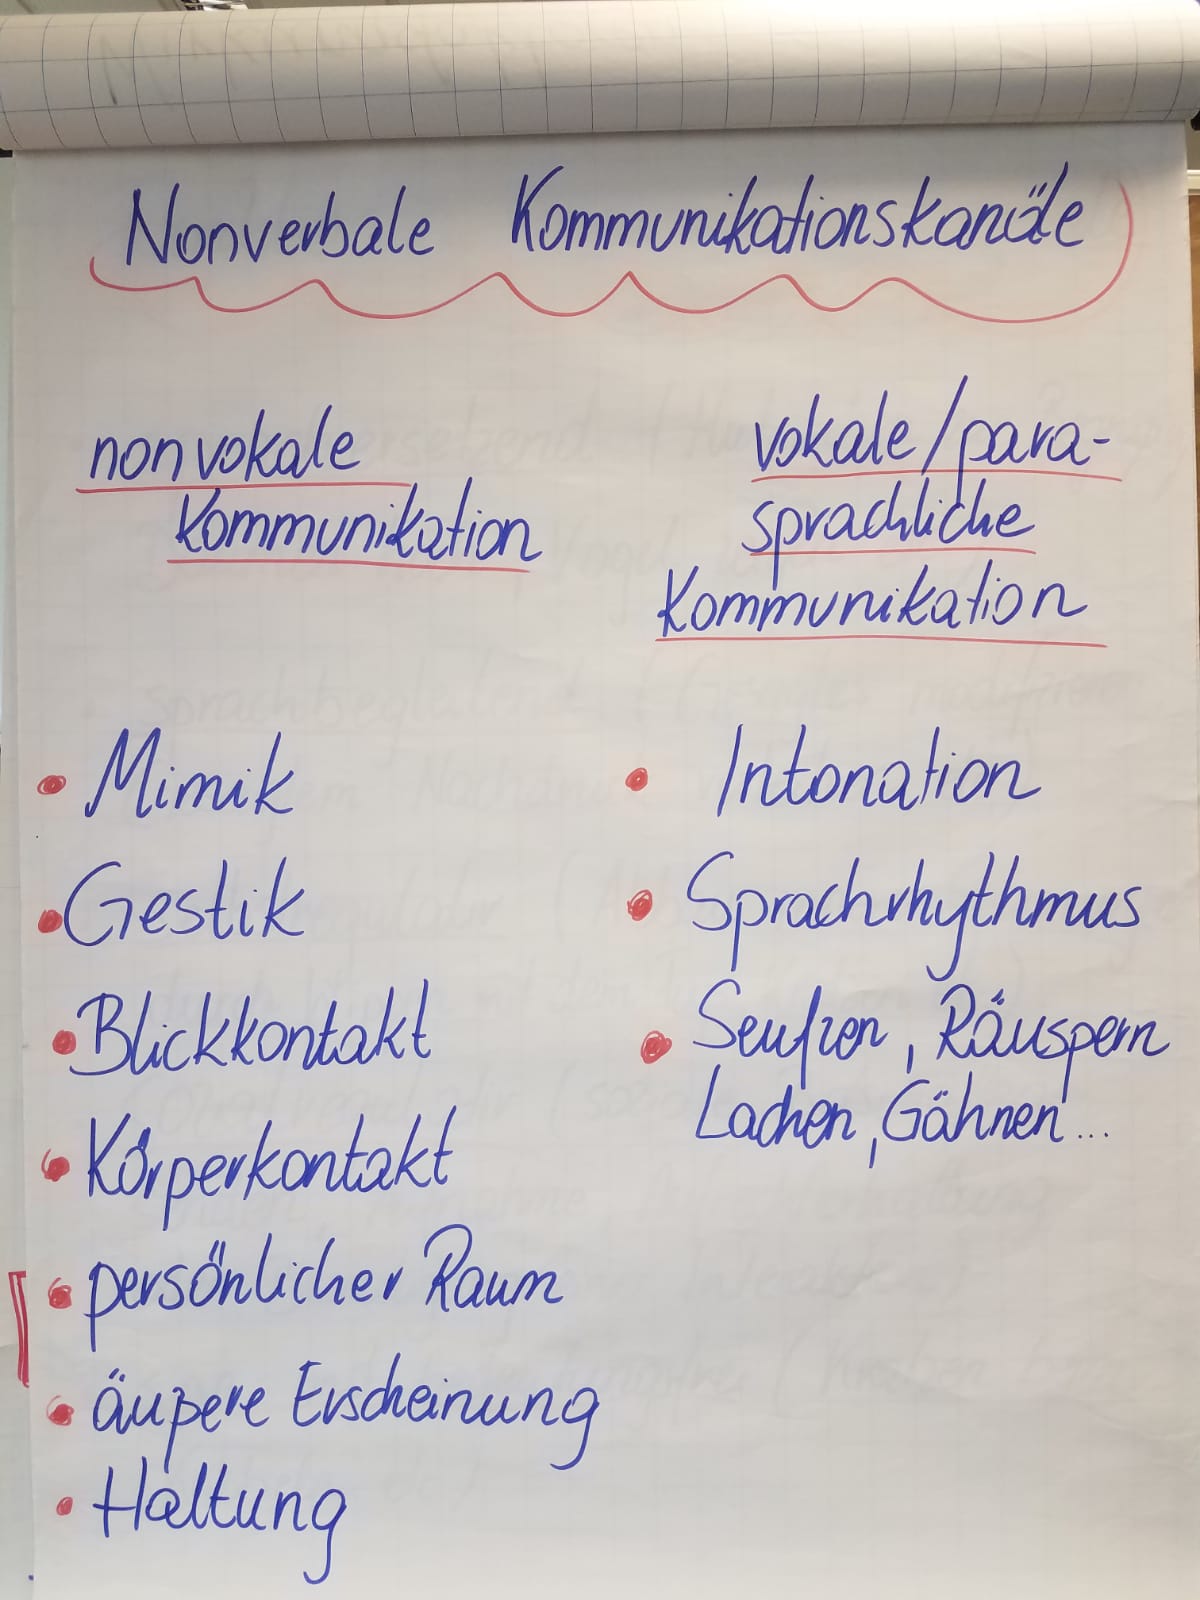 Nonverbale Kommunikationskanäle
nonvokale
Kommunikation
vokale/para-
sprachliche
Kommunikation
• Mimik
• Gestik
• Blickkontakt
• Körperkontakt
• persönlicher Raum
• äußere Erscheinung
• Haltung
• Intonation
• Sprachrhythmus
• Seufzen, Räuspern
Lachen, Gähnen...